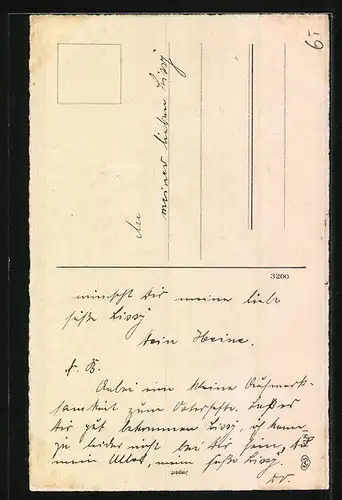 6,-
An
meiner lieben Lissy
3200
wünscht Dir meine liebe
süße Lissy
Dein Heinz.
N. B.
Anbei eine kleine Aufmerk-
samkeit zum Osterfeste. Laß es
Dir gut bekommen Lissy, ich kann
ja leider nicht bei Dir sein, Du
mein Alles, meine süße Lissy.
D.O.